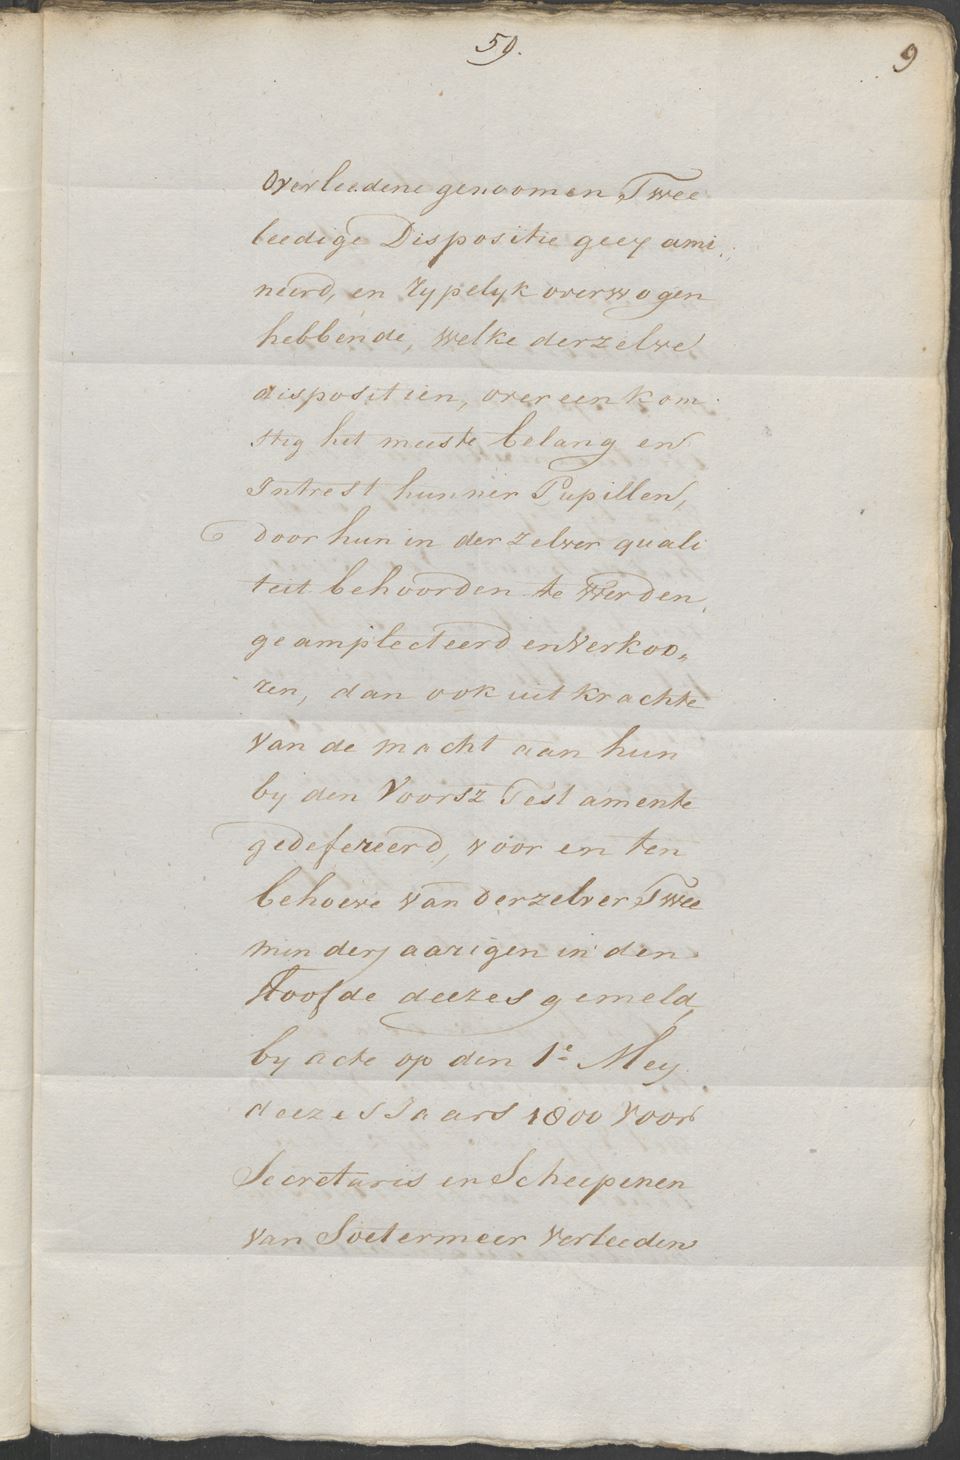 59.
9
Overleedene genoomen Twee
leedige Dispositie geexami
neerd, en rypelyk overwogen
hebbende, welke derzelve
dispositien, overeenkom
stig het meeste belang en
Intrest hunner Pupillen,
door hun in derzelver quali
teit behoorden te werden
geamplecteerd en verkoo„
zen, dan ook uit krachte
van de macht aan hun
by den voorsz Testamente
gedefereerd, voor en ten
behoeve van derzelver Twee
minderjaarigen in den
Hoofde deezes gemeld,
by acte op den 1e Mey
deezes Jaars 1800 voor
Secretaris en Scheepenen
van Soetermeer verleeden